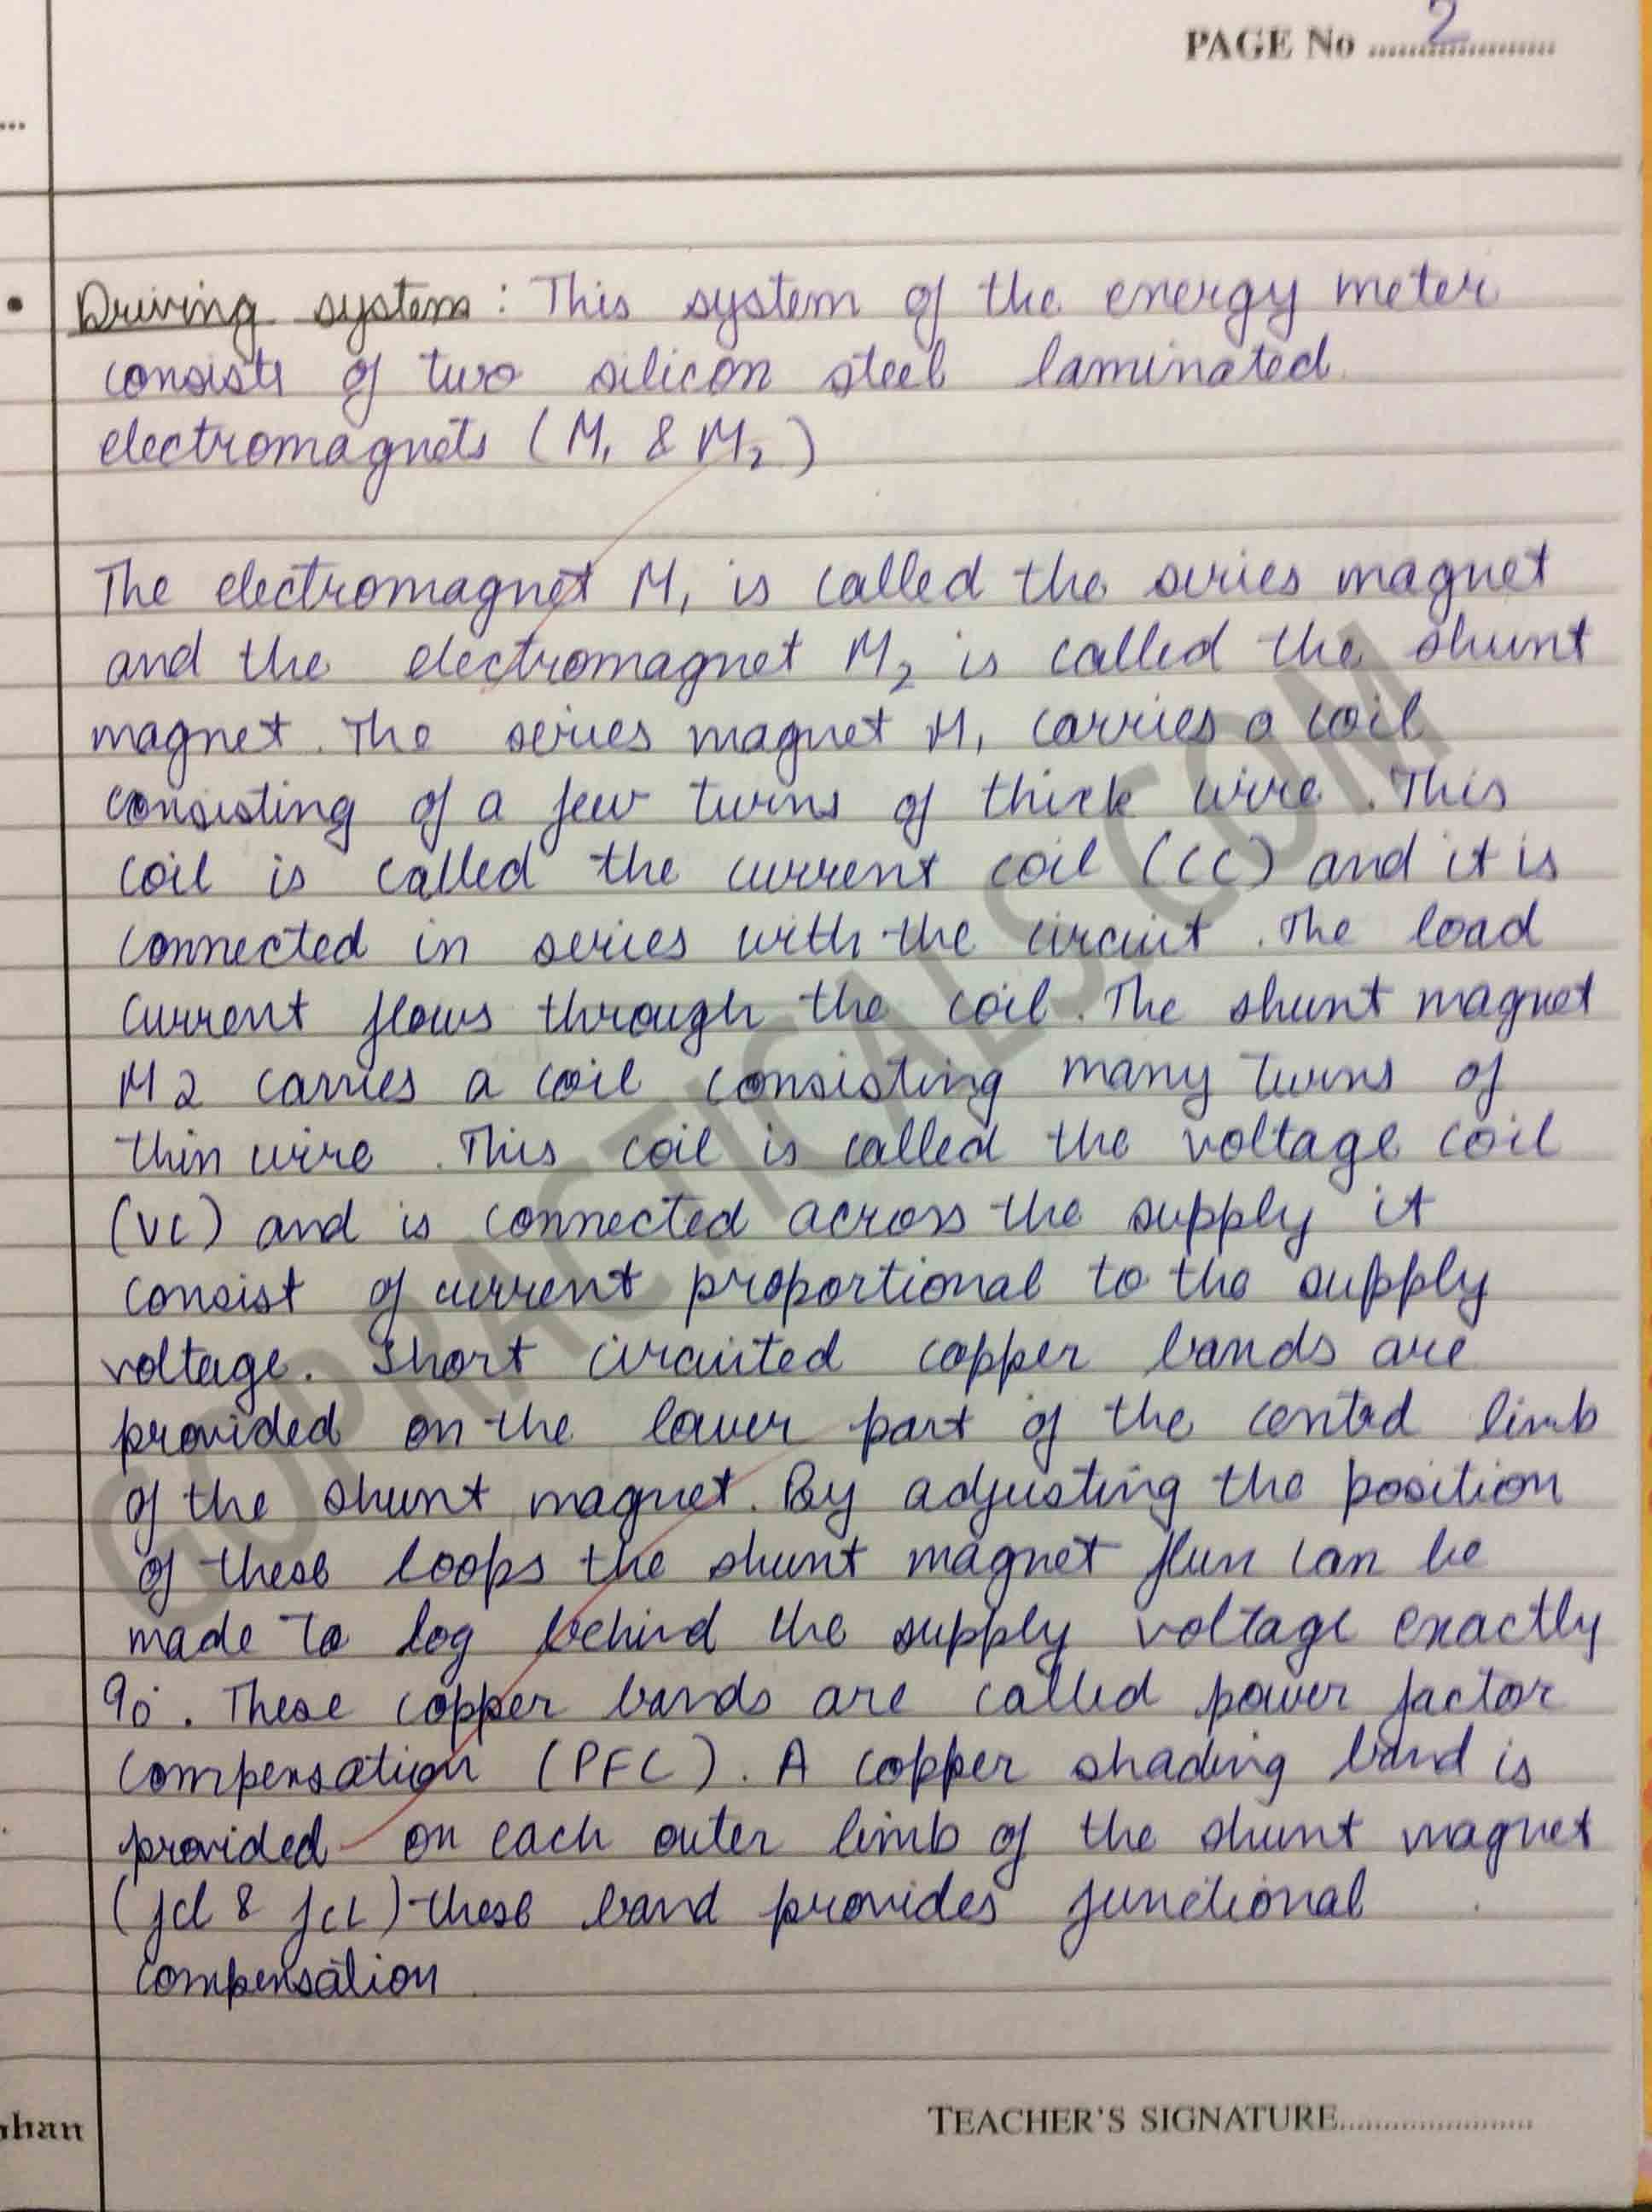 PAGE No ...2...
• Driving system : This system of the energy meter
consists of two silicon steel laminated
electromagnets (M₁ & M₂)
The electromagnet M₁ is called the series magnet
and the electromagnet M₂ is called the shunt
magnet. The series magnet M₁ carries a coil
consisting of a few turns of thick wire. This
coil is called the current coil (CC) and it is
connected in series with the circuit. The load
current flows through the coil. The shunt magnet
M2 carries a coil consisting many turns of
thin wire. This coil is called the voltage coil
(VC) and is connected across the supply it
consist of current proportional to the supply
voltage. Short circuited copper bands are
provided on the lower part of the central limb
of the shunt magnet. By adjusting the position
of these loops the shunt magnet flux can be
made to log behind the supply voltage exactly
90°. These copper bands are called power factor
compensation (PFC). A copper shading band is
provided on each outer limb of the shunt magnet
these band provides functional
compensation
GOPRACTICALS.COM
TEACHER'S SIGNATURE......................